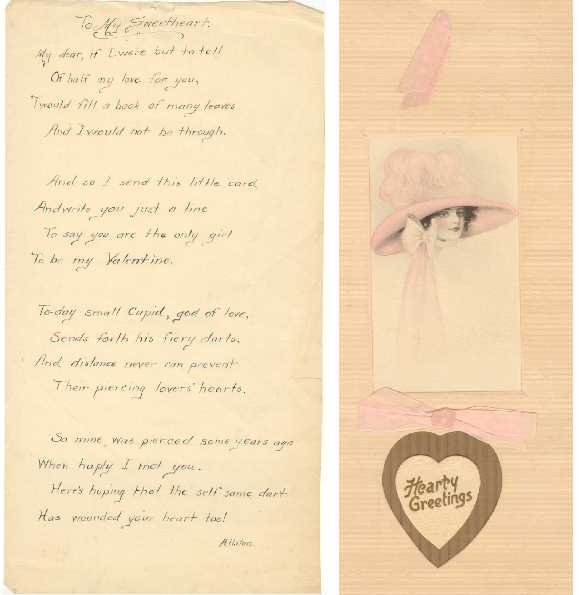 To My Sweetheart.
My dear, if I were but to tell
Of half my love for you,
I would fill a book of many leaves
And I would not be through.
And so I send this little card
And write you just a line
To say you are the only girl
To be my Valentine.
To-day small Cupid, god of love,
Sends forth his fiery darts.
And distance never can prevent
Their piercing lovers' hearts.
So mine was pierced some years ago
When haply I met you.
Here's hoping that the self same dart
Has wounded your heart too!
Hearty
Greetings